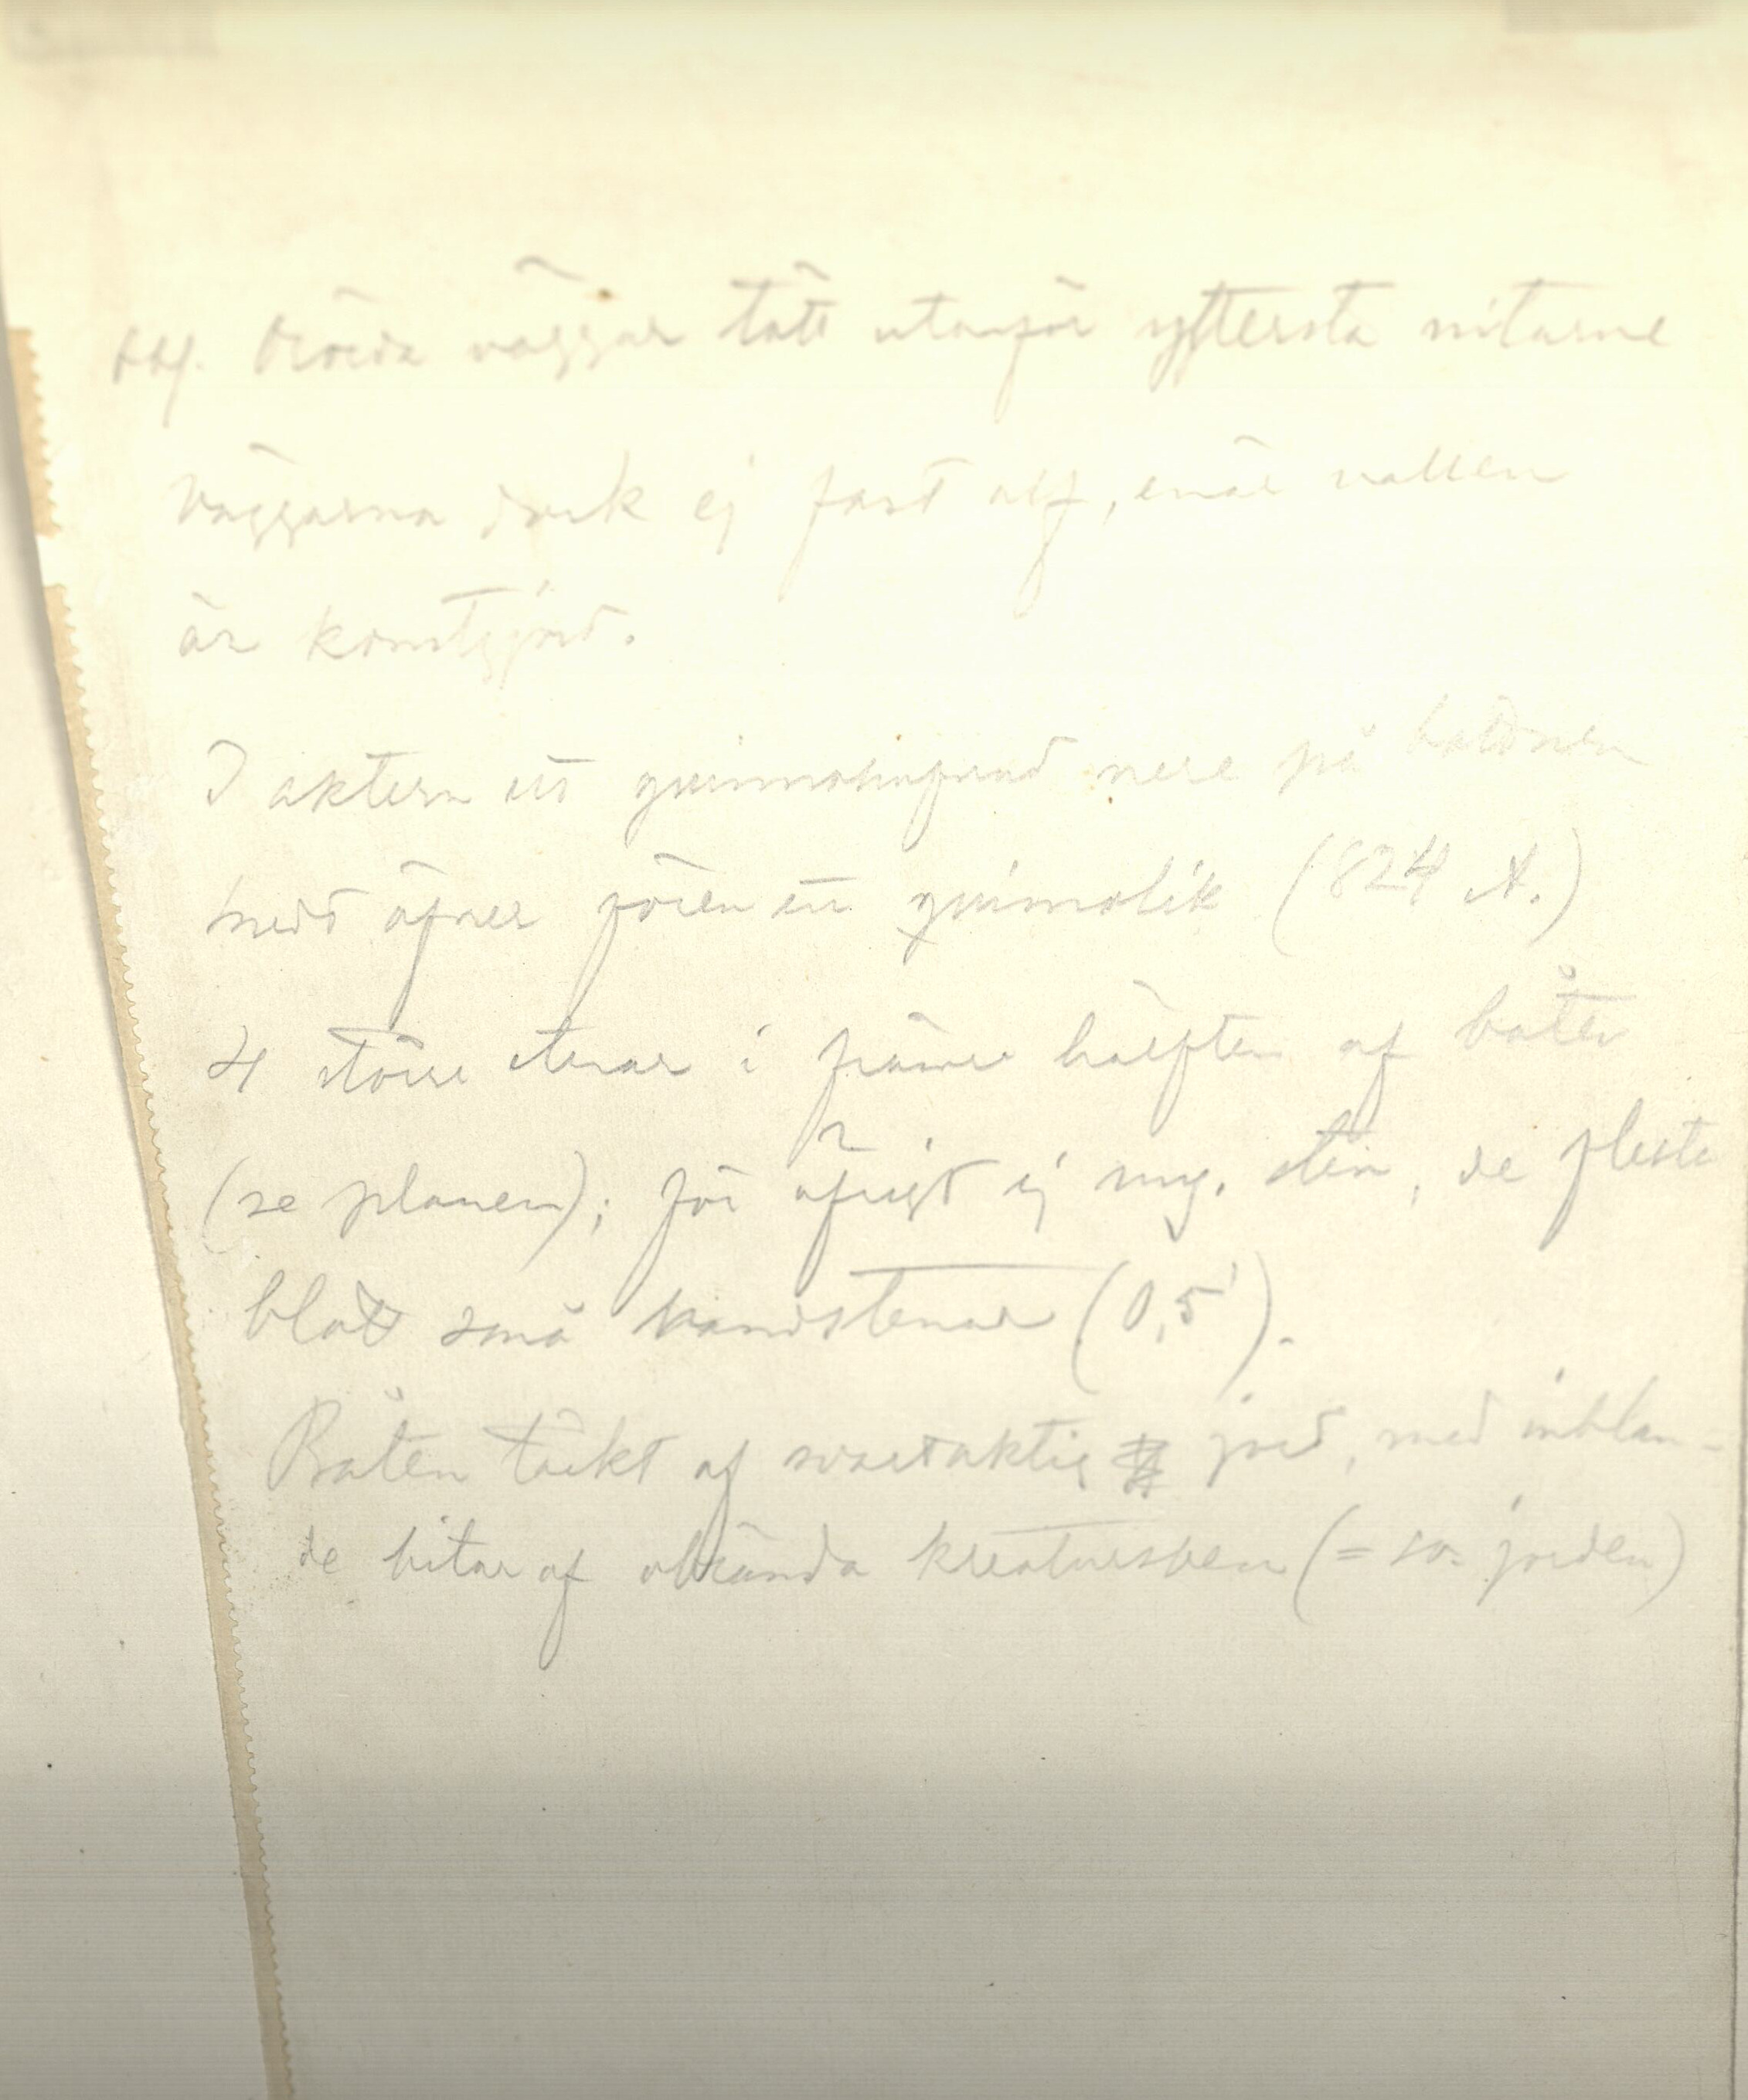 Obs. Orörda väggar tätt utanför yttersta nitarne
Väggarna dock ej fast alf, enär vallen
är konstgjord.
I aktern ett qvinnohufvud nere på bottnen
med öfver fören ett qvinnolik (824 A.)
4 större stenar i främre hälften af båten
(se planen); för öfrigt ej myc. sten, de flesta
blott små handstenar (0,5').
Båten täckt af svartaktig jord, med inblan-
de bitar af obrända kreatursben (= so. jorden)